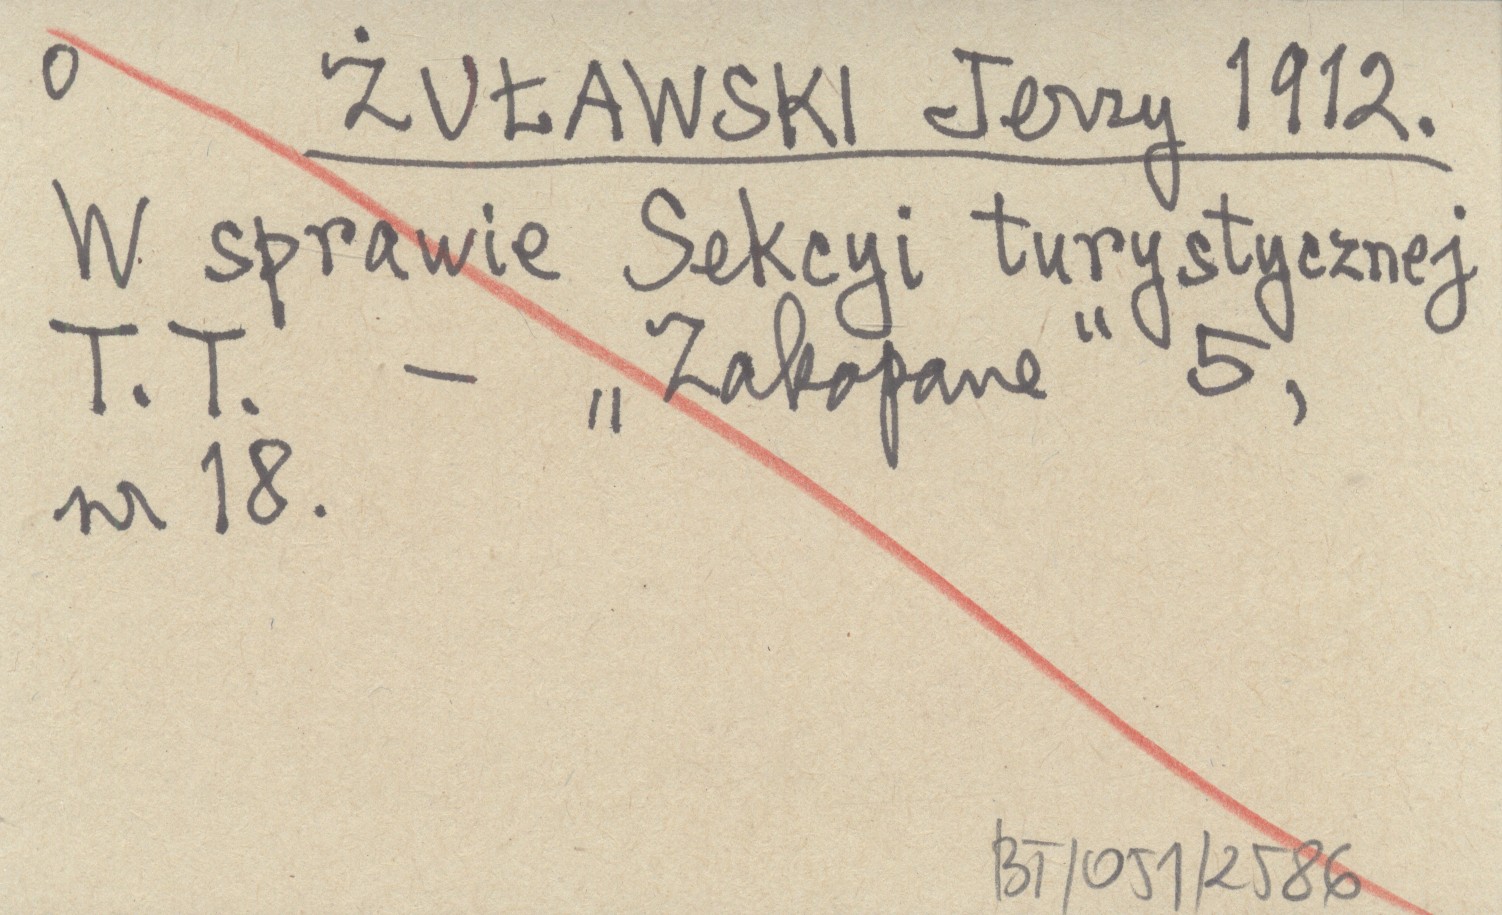 0 ŻUŁAWSKI Jerzy 1912.
W sprawie Sekcyi turystycznej
T.T. – „Zakopane" 5,
nr 18.
BT/051/2586